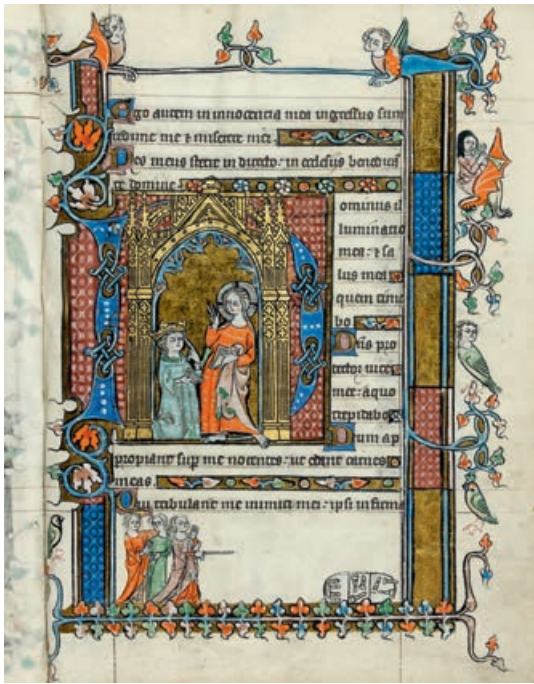 Ego autem in innocencia mea ingressus sum
redime me & miserere mei.
Pes meus stetit in directo: in ecclesiis
te domine.
Dominus il
luminatio
mea: & sa
lus mea
quem time
bo
Dñs pro
tector vite
mee: a quo
trepidabo
Dum ap
propiant sup me nocentes: ut edant carnes
meas.
Qui tribulant me inimici mei: ipsi infirma